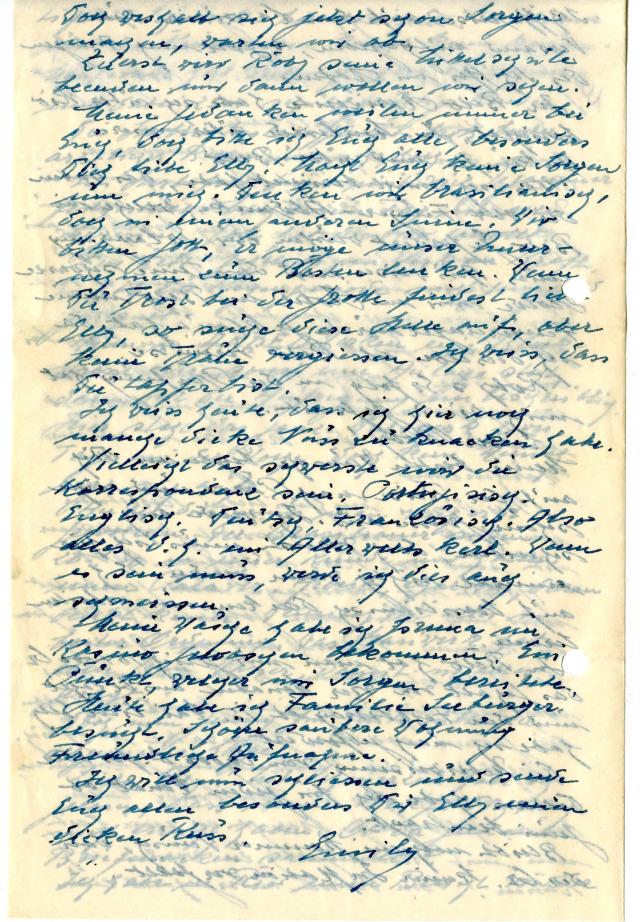 Doch weshalb sich jetzt schon Sorgen
machen, warten wir ab.
Zuerst wird Roby seine
beenden und dann wollen wir sehen.
Meine Gedanken weilen immer bei
Euch, doch bitte ich Euch alle, besonders
Dich liebe Elly. Macht Euch keine Sorgen
um mich. Denken wir brasilianisch,
doch in einem anderen Sinne. Wir
bitten Gott, Er möge unser Unter-
nehmen zum Besten lenken. Wenn
Du Trost bei der Grotte findest liebe
Elly, so suche diese Stelle auf, aber
keine Träne vergiessen. Ich weiss, dass
Du tapfer bist.
Ich weiss heute, dass ich hier noch
manche dicke Nuss zu knacken habe.
Vielleicht das schwerste wird die
Korrespondenz sein. Portugisisch.
Englisch. Deutsch, Französisch. Also
alles d. h. ein Allerwelts Karl. Wenn
es sein muss, werde ich dies auch
schmeissen.
Meine Wäsche habe ich prima im
Kasino gewaschen bekommen. Ein
Punkt, welcher mir Sorgen bereitete.
Heute habe ich Familie Seeburger
besucht. Schöne saubere Wohnung
Freundliche Aufnahme.
Ich will nun schliessen und sende
Euch allen besonders Dir Elly einen
dicken Kuss.
Emily